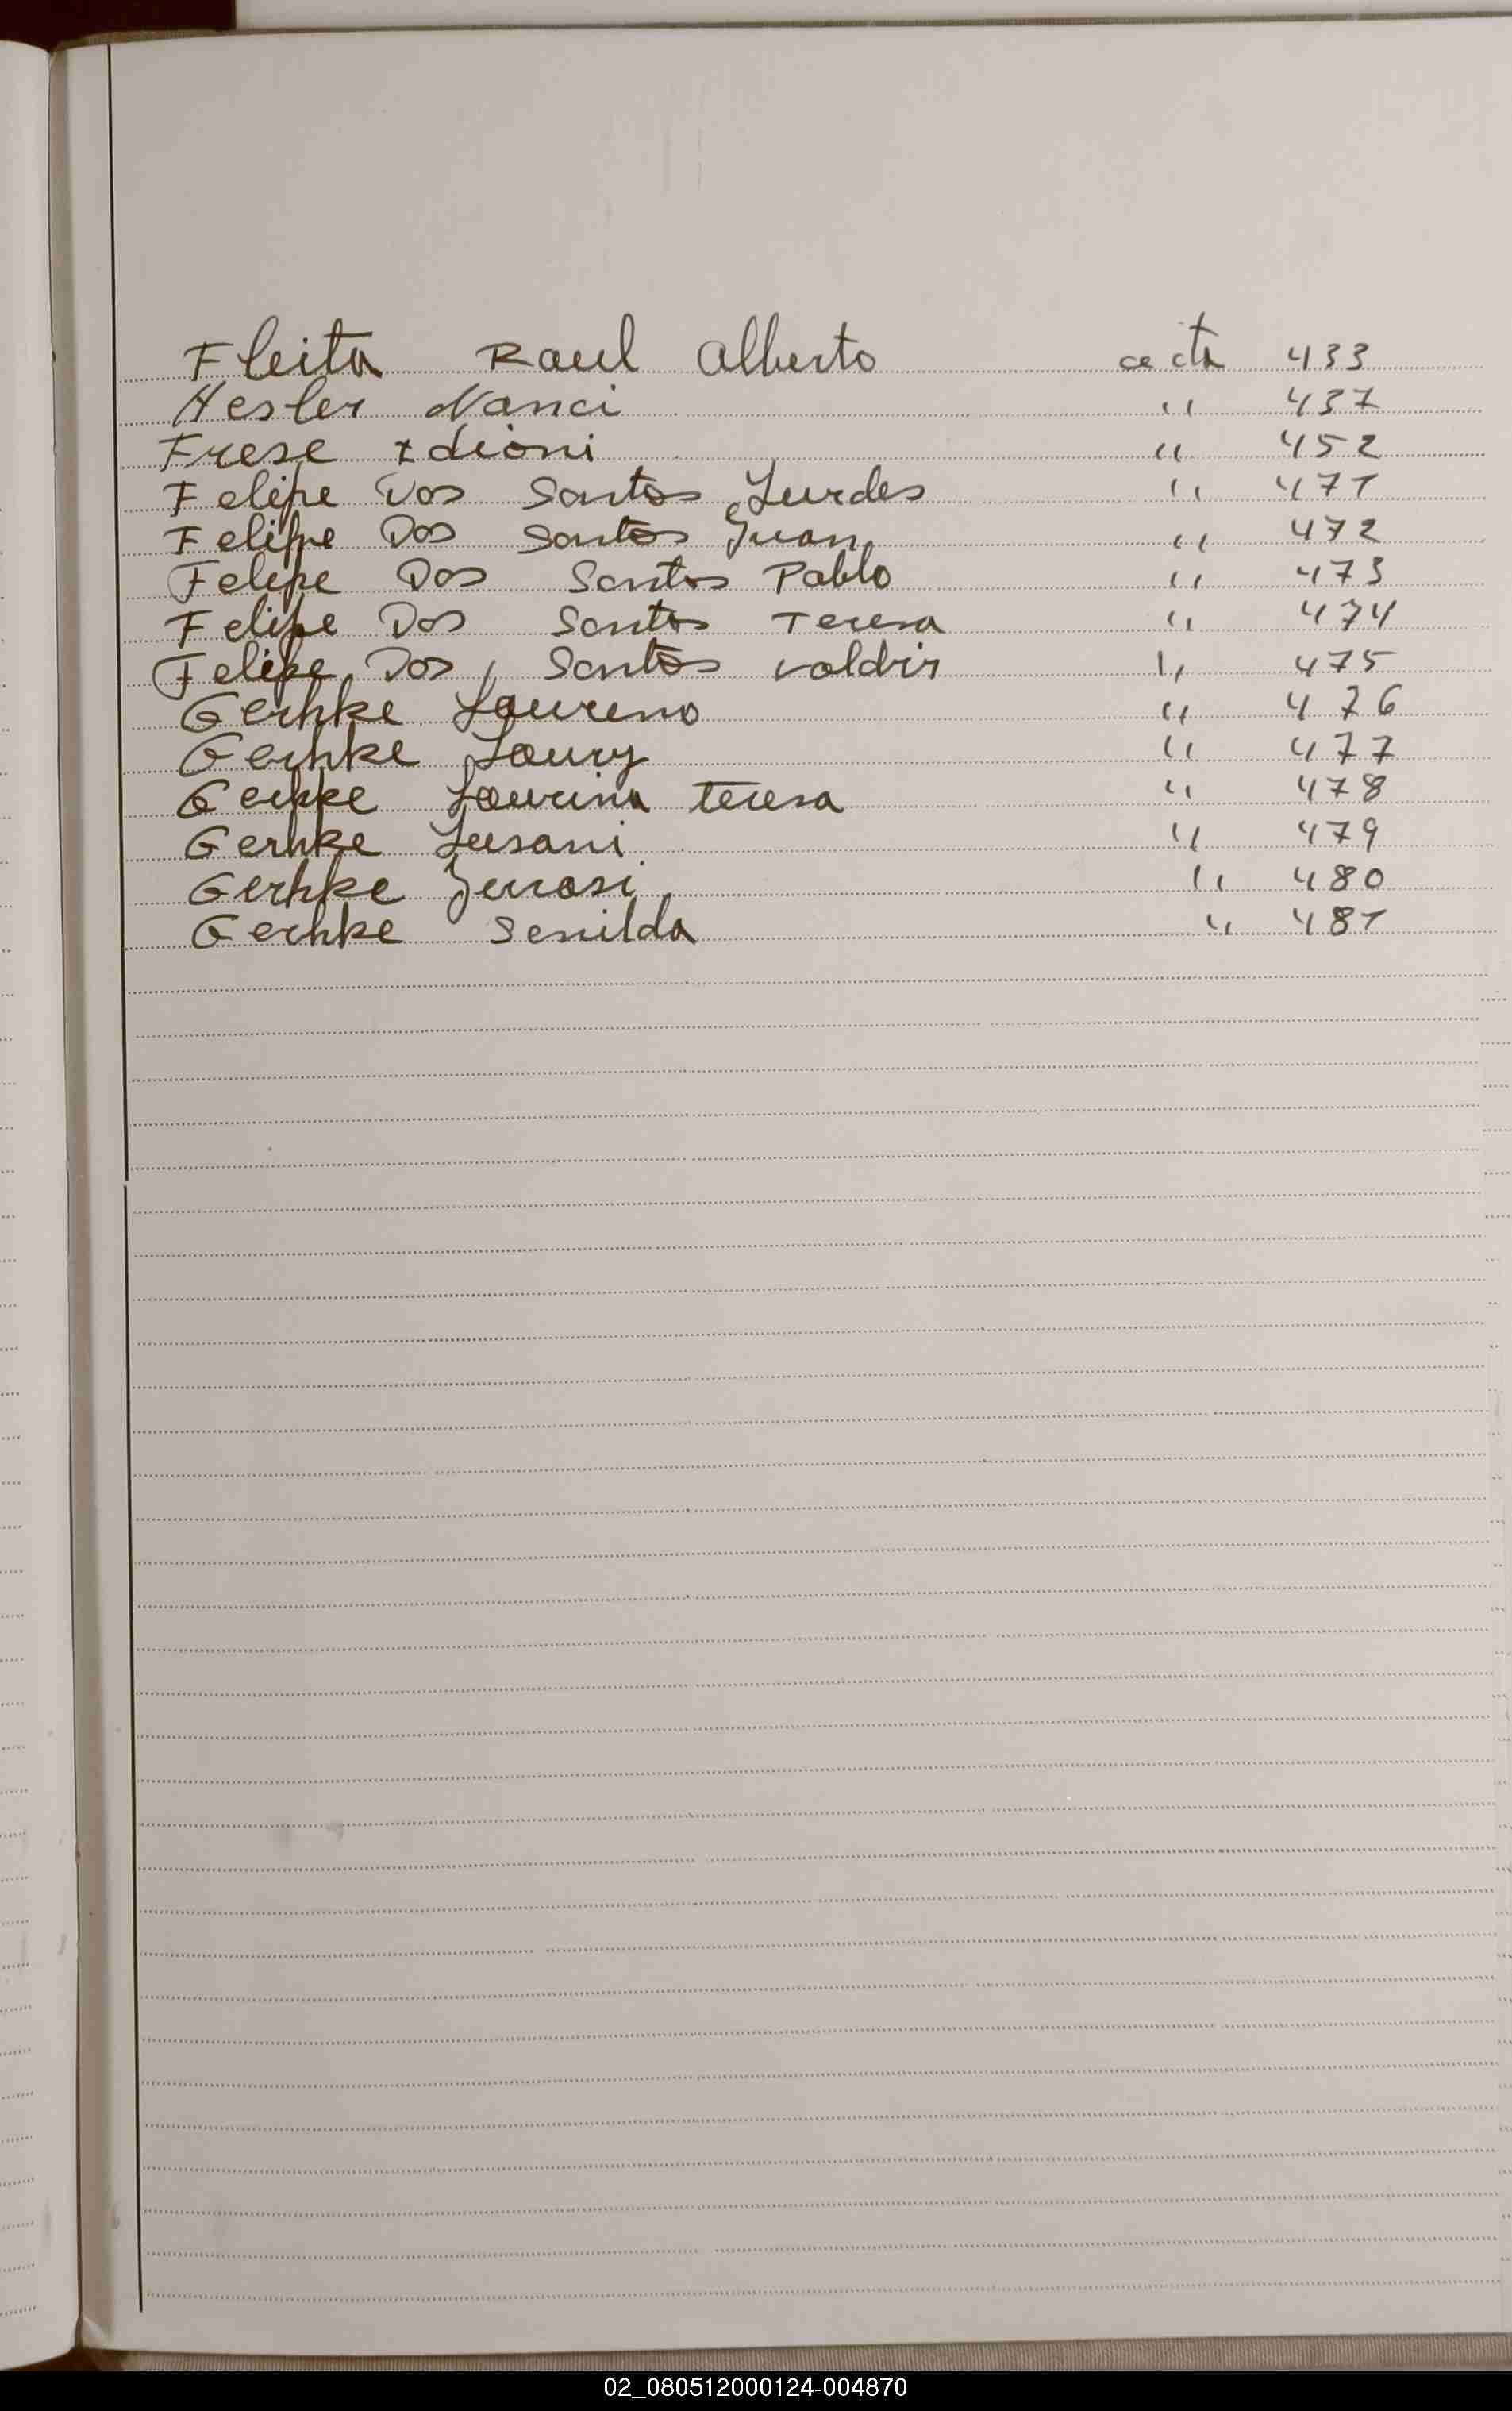 Fleita Raul Alberto acta 433
Hesler Nanci " 437
Frese Idioni " 452
Felipe Dos Santos Lurdes " 471
Felipe Dos Santos Juan " 472
Felipe Dos Santos Pablo " 473
Felipe Dos Santos Teresa " 474
Felipe Dos Santos Valdir " 475
Gerhke Laureno " 476
Gerhke Laury " 477
Gerhke Laurina teresa " 478
Gerhke Lusani " 479
Gerhke " 480
Gerhke Senilda " 481
02_080512000124-004870